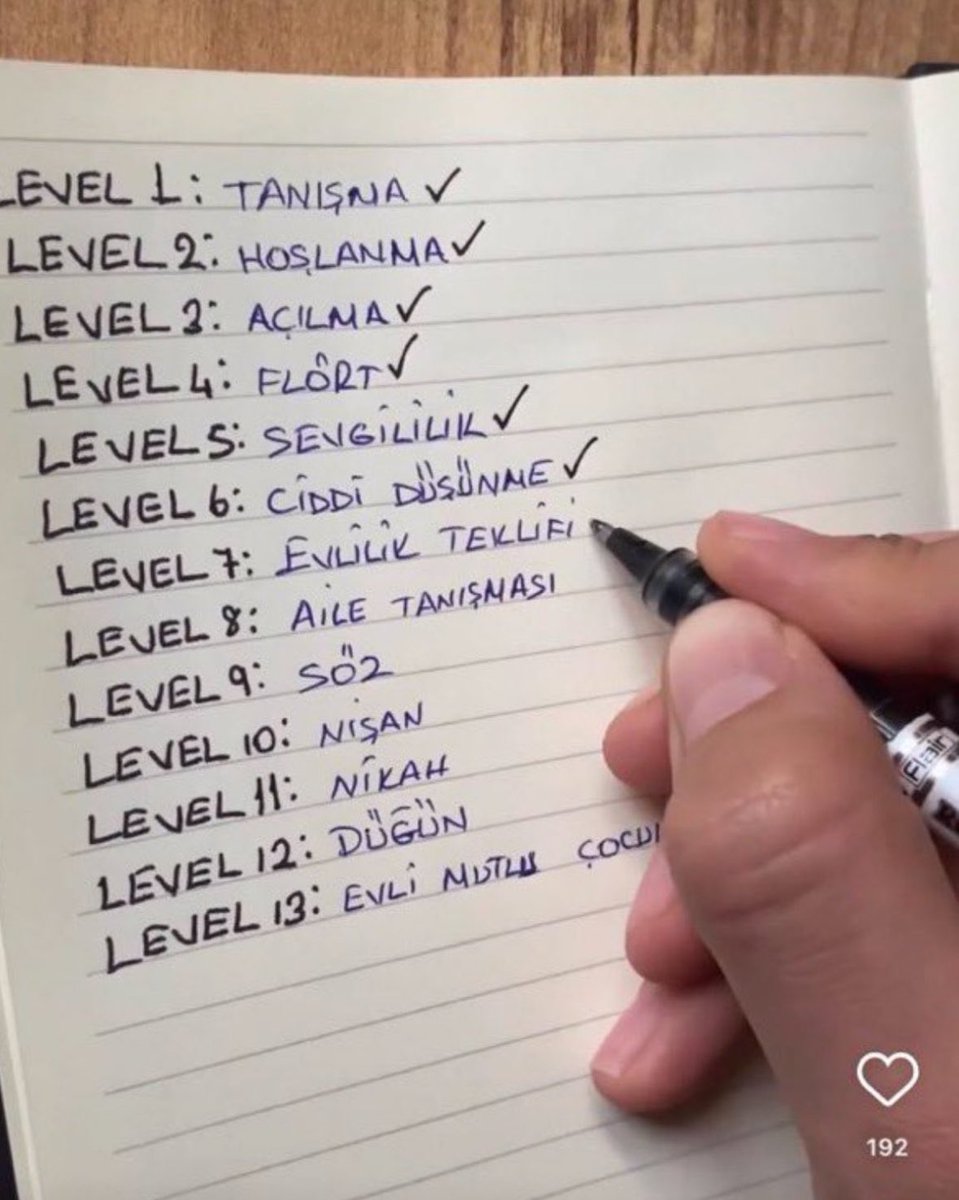 LEVEL 1: TANIŞMA ✓
LEVEL 2: HOŞLANMA ✓
LEVEL 3: AÇILMA ✓
LEVEL 4: FLÖRT ✓
LEVEL 5: SEVGİLİLİK ✓
LEVEL 6: CİDDİ DÜŞÜNME ✓
LEVEL 7: EVLİLİK TEKLİFİ
LEVEL 8: AİLE TANIŞMASI
LEVEL 9: SÖZ
LEVEL 10: NİŞAN
LEVEL 11: NİKAH
LEVEL 12: DÜĞÜN
LEVEL 13: EVLİ MUTLU
Flair
192